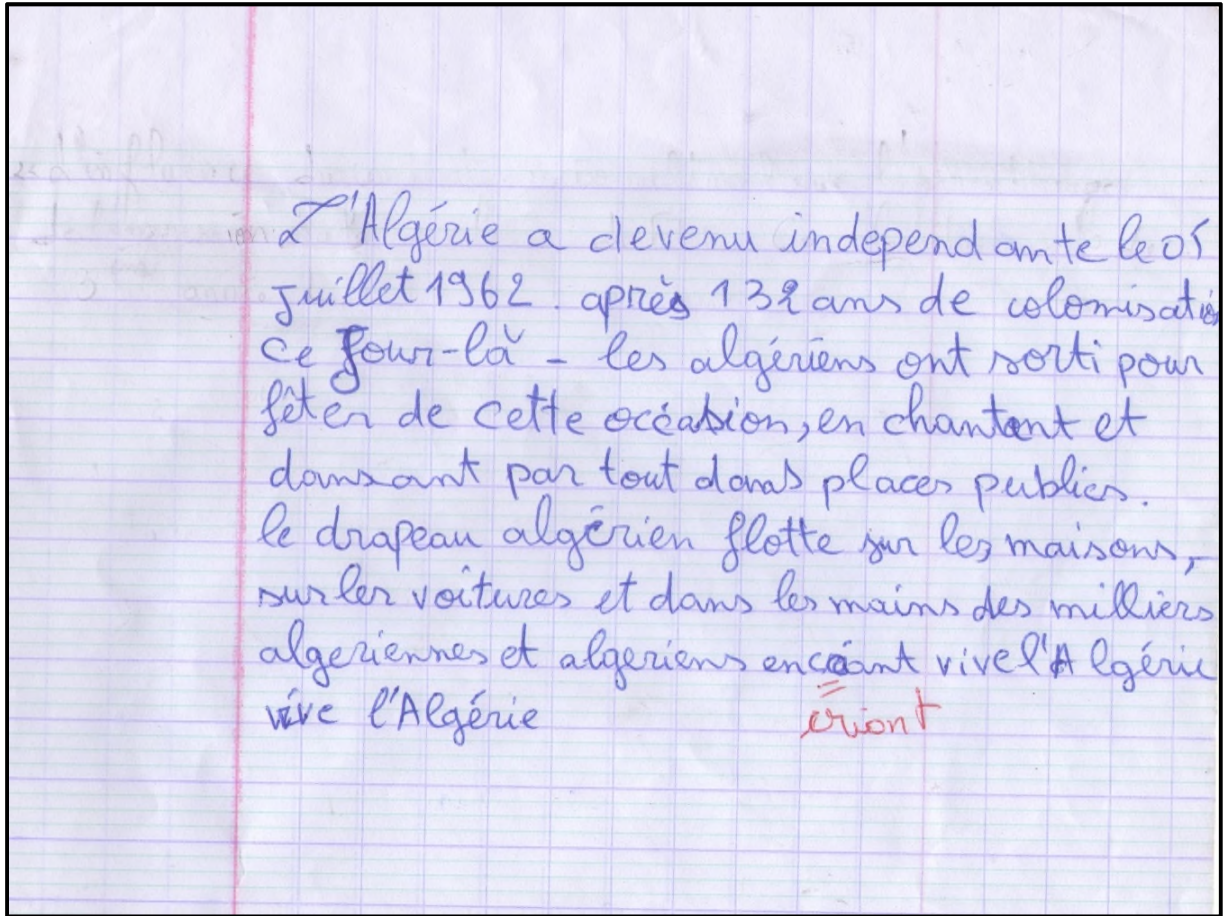 L'Algérie a devenu independante le 05
juillet 1962. après 132 ans de colonisatio
ce jour-là - les algériens ont sorti pour
fêter de cette occasion, en chantant et
dansant par tout dans places publics.
le drapeau algérien flotte sur les maisons,
sur les voitures et dans les mains des milliers
algeriennes et algeriens en vive l'Algérie
vive l'Algérie criant